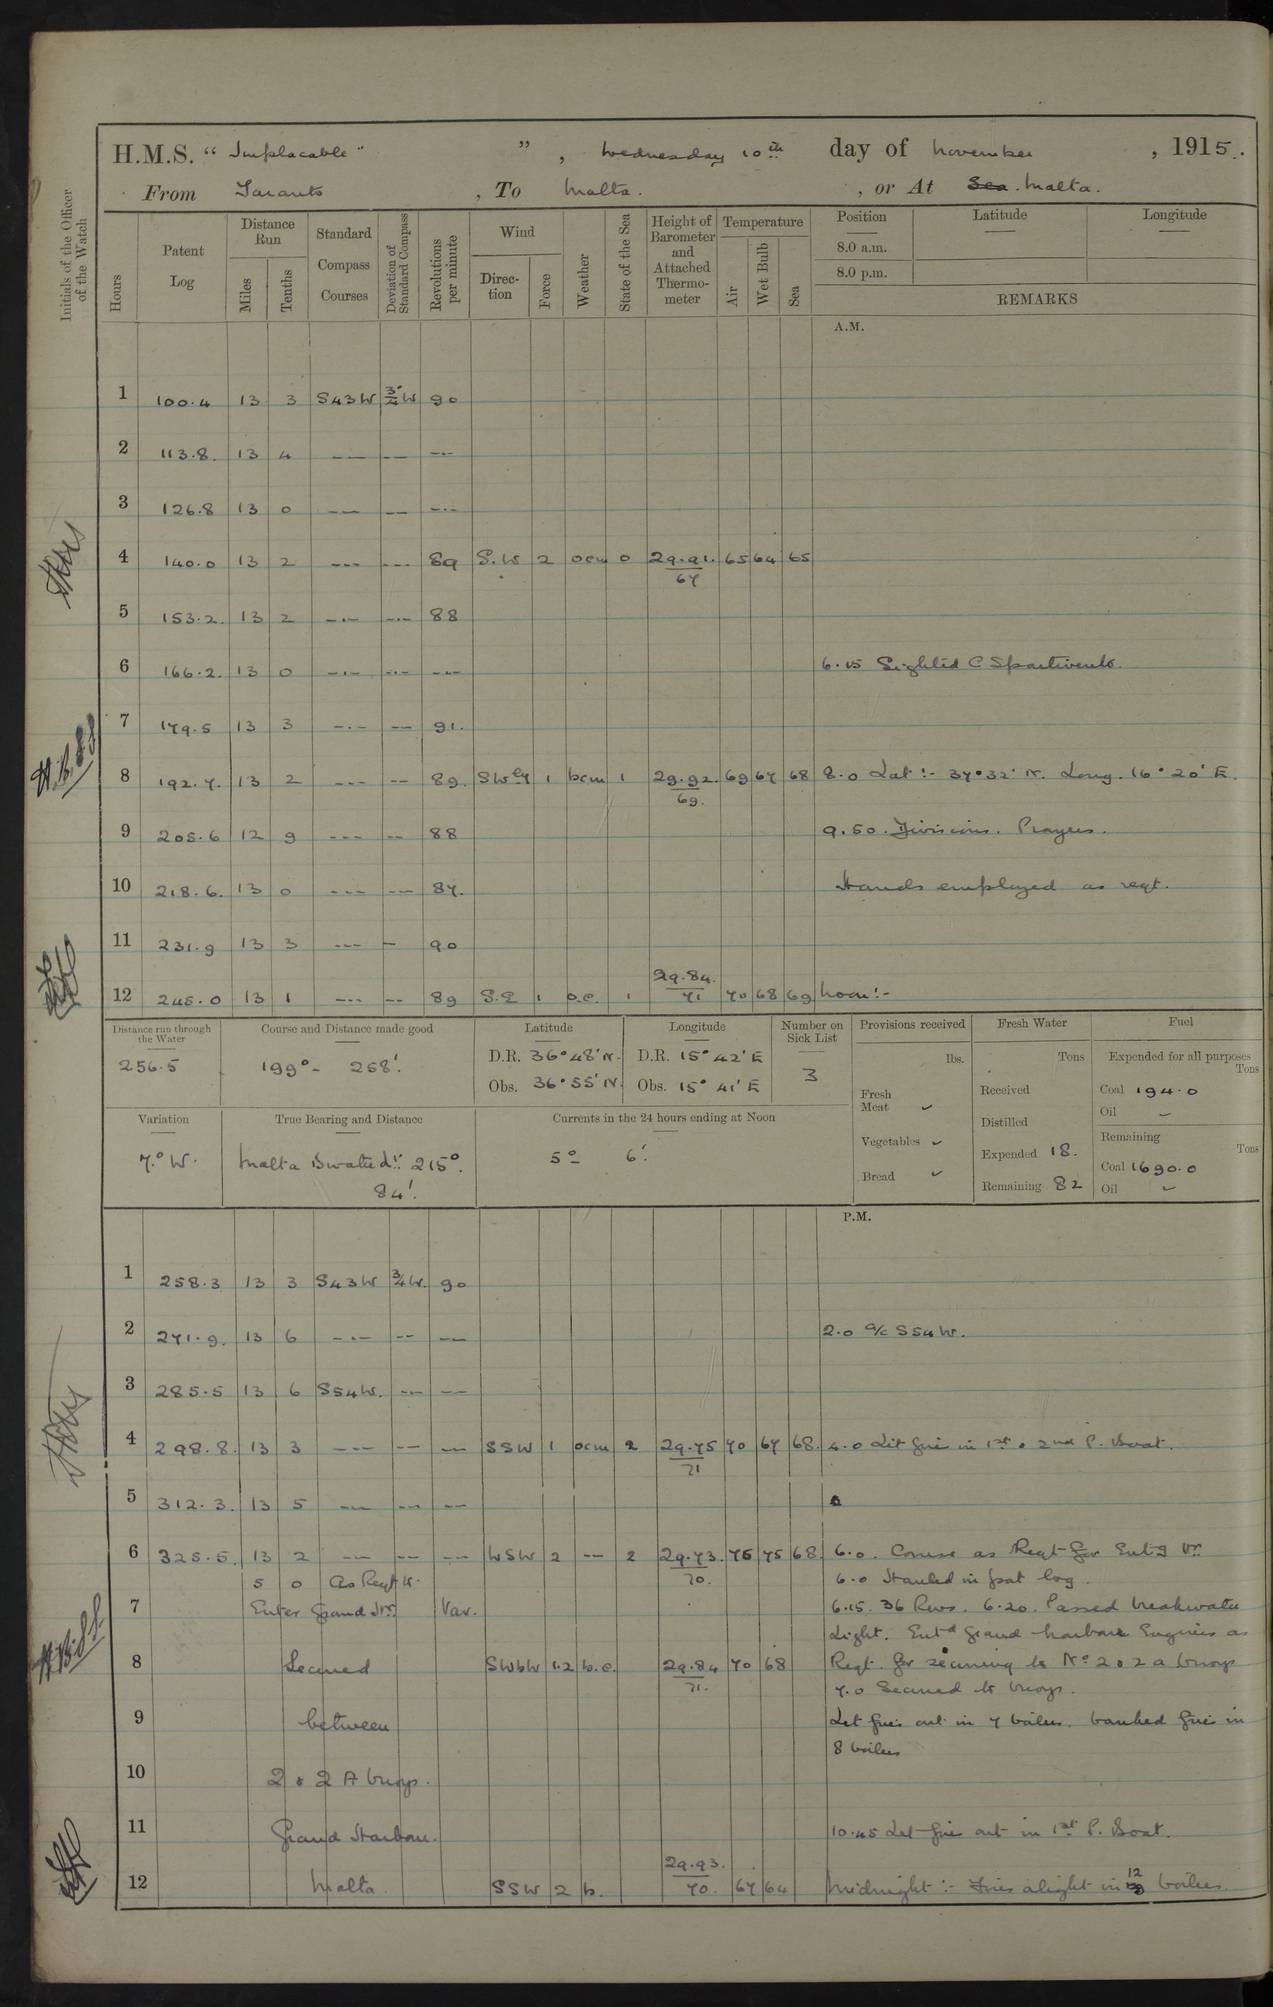 H.M.S. “ Implacable ” , Wednesday 10th day of November , 1915.
From Taranto , To Malta. , or At Sea. Malta.
Initials of the Officer of the Watch
Hours
Patent Log
Distance Run
Miles
Tenths
Standard Compass Courses
Deviation of Standard Compass
Revolutions per minute
Wind
Direction
Force
Weather
State of the Sea
Height of Barometer and Attached Thermometer
Temperature
Air
Wet Bulb
Sea
Position
8.0 a.m.
8.0 p.m.
Latitude
Longitude
REMARKS
A.M.
1 100.4 13 3 S43W 3/4°W 90
2 113.8. 13 4 --- --- ---
3 126.8 13 0 --- --- ---
4 140.0 13 2 --- --- 89 S.W 2 ocm 0 29.91. 65 64 65
67
5 153.2. 13 2 --- --- 88
6 166.2. 13 0 --- --- --- 6.15 Sighted C Spartivento.
7 179.5 13 3 --- --- 91.
8 192.7. 13 2 --- --- 89. SWly 1 bcm 1 29.92. 69 67 68 8.0 Lat :- 37°32' N. Long. 16°20' E.
69.
9 205.6 12 9 --- --- 88 9.50. Divisions. Prayers.
10 218.6. 13 0 --- --- 87. Hands employed as reqt.
11 231.9 13 3 --- --- 90
29.84.
12 245.0 13 1 --- --- 89 S.E 1 o.c. 1 71 70 68 69 Noon :-
Distance run through the Water
256.5
Course and Distance made good
199° - 258'.
Latitude
D.R. 36°48' N.
Obs. 36°55' N.
Longitude
D.R. 15°42' E
Obs. 15° 41' E
Number on Sick List
3
Provisions received
lbs.
Fresh Meat ✓
Vegetables ✓
Bread ✓
Fresh Water
Tons
Received
Distilled
Expended 18.
Remaining 82
Fuel
Expended for all purposes
Tons
Coal 194.0
Oil –
Remaining
Tons
Coal 1690.0
Oil –
Variation
7.° W.
True Bearing and Distance
Malta 215°.
84'.
Currents in the 24 hours ending at Noon
5° 6'.
P.M.
1 258.3 13 3 S43W 3/4W. 90
2 271.9. 13 6 --- --- --- 2.0 a/c S54W.
3 285.5 13 6 S54W. --- ---
4 298.8. 13 3 --- --- --- SSW 1 ocm 2 29.75 70 67 68. 4.0 Lit fires in 1st & 2nd P. Boat.
71
5 312.3. 13 5 --- --- ---
6 325.5. 13 2 --- --- --- WSW 2 -- 2 29.73. 76 75 68 6.0. Course as Reqt for Entg Hr
70.
5 0 As Reqt 6.0 Hauled in pat log.
7 Enter Grand Hr Var. 6.15. 36 Revs. 6.20. Passed breakwater
Light. Entd Grand Harbour Engines as
8 Secured SWbW 1.2 b.c. 29.84 70 68 Reqt. for securing to No 2 & 2 a buoys
71. 7.0 Secured to buoys.
9 between Let fires out in 7 boilers. banked fires in
8 boilers
10 2 & 2 A buoys.
11 Grand Harbour. 10.45 Let fires out in 1st P. Boat.
29.93.
12 Malta SSW 2 b. 70. 67 64 Midnight :- Fires alight in 12 boilers